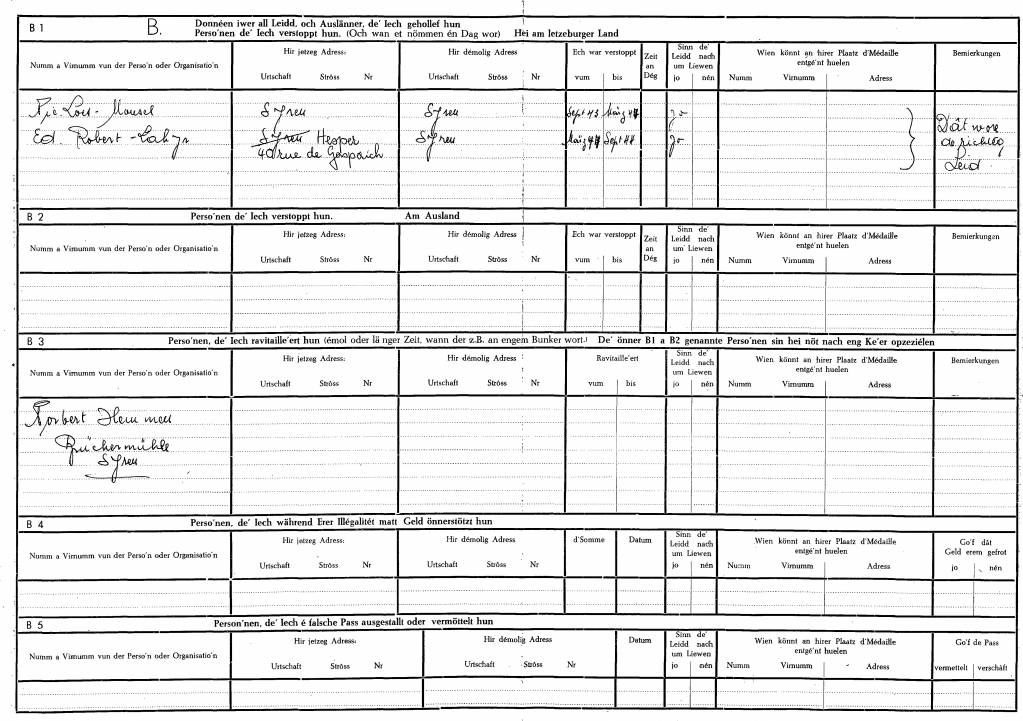 B 1 B. Donnéen iwer all Leidd, och Auslänner, de' Iech gehollef hun
Perso'nen de' Iech verstoppt hun. (Och wan et nömmen én Dag wor) Hei am letzeburger Land
Numm a Virnumm vun der Perso'n oder Organisatio'n
Hir jetzeg Adress:
Urtschaft Ströss Nr
Hir démolig Adress
Urtschaft Ströss Nr
Ech war verstoppt
vum bis
Zeit
an
Dég
Sinn de'
Leidd nach
um Liewen
jo nén
Wien könnt an hirer Plaatz d'Médaille
entgé'nt huelen
Numm Virnumm Adress
Bemierkungen
Syren Syren Sept 43 März jo
Ed. Robert - Syren Hesper Syren März Sept 44 jo
40 rue de Gasperich
Dât wore
de richteg
Leid
B 2 Perso'nen de' Iech verstoppt hun. Am Ausland
Numm a Virnumm vun der Perso'n oder Organisatio'n
Hir jetzeg Adress:
Urtschaft Ströss Nr
Hir démolig Adress
Urtschaft Ströss Nr
Ech war verstoppt
vum bis
Zeit
an
Dég
Sinn de'
Leidd nach
um Liewen
jo nén
Wien könnt an hirer Plaatz d'Médaille
entgé'nt huelen
Numm Virnumm Adress
Bemierkungen
B 3 Perso'nen, de' Iech ravitaille'ert hun (émol oder lä nger Zeit, wann der z.B. an engem Bunker wort.) De' önner B1 a B2 genannte Perso'nen sin hei nöt nach eng Ke'er opzeziélen
Numm a Virnumm vun der Perso'n oder Organisatio'n
Hir jetzeg Adress:
Urtschaft Ströss Nr
Hir démolig Adress
Urtschaft Ströss Nr
Ravitaille'ert
vum bis
Sinn de'
Leidd nach
um Liewen
jo nén
Wien könnt an hirer Plaatz d'Médaille
entgé'nt huelen
Numm Virnumm Adress
Bemierkungen
Norbert Hemmen
Büchermühle
Syren
B 4 Perso'nen, de' Iech während Erer Illégalitét matt Geld önnerstötzt hun
Numm a Virnumm vun der Perso'n oder Organisatio'n
Hir jetzeg Adress:
Urtschaft Ströss Nr
Hir démolig Adress
Urtschaft Ströss Nr
d'Somme
Datum
Sinn de'
Leidd nach
um Liewen
jo nén
Wien könnt an hirer Plaatz d'Médaille
entgé'nt huelen
Numm Virnumm Adress
Go'f dât
Geld erem gefrot
jo nén
B 5 Person'nen, de' Iech é falsche Pass ausgestallt oder vermöttelt hun
Numm a Virnumm vun der Perso'n oder Organisatio'n
Hir jetzeg Adress:
Urtschaft Ströss Nr
Hir démolig Adress
Urtschaft Ströss Nr
Datum
Sinn de'
Leidd nach
um Liewen
jo nén
Wien könnt an hirer Plaatz d'Médaille
entgé'nt huelen
Numm Virnumm Adress
Go'f de Pass
vermettelt verschâft